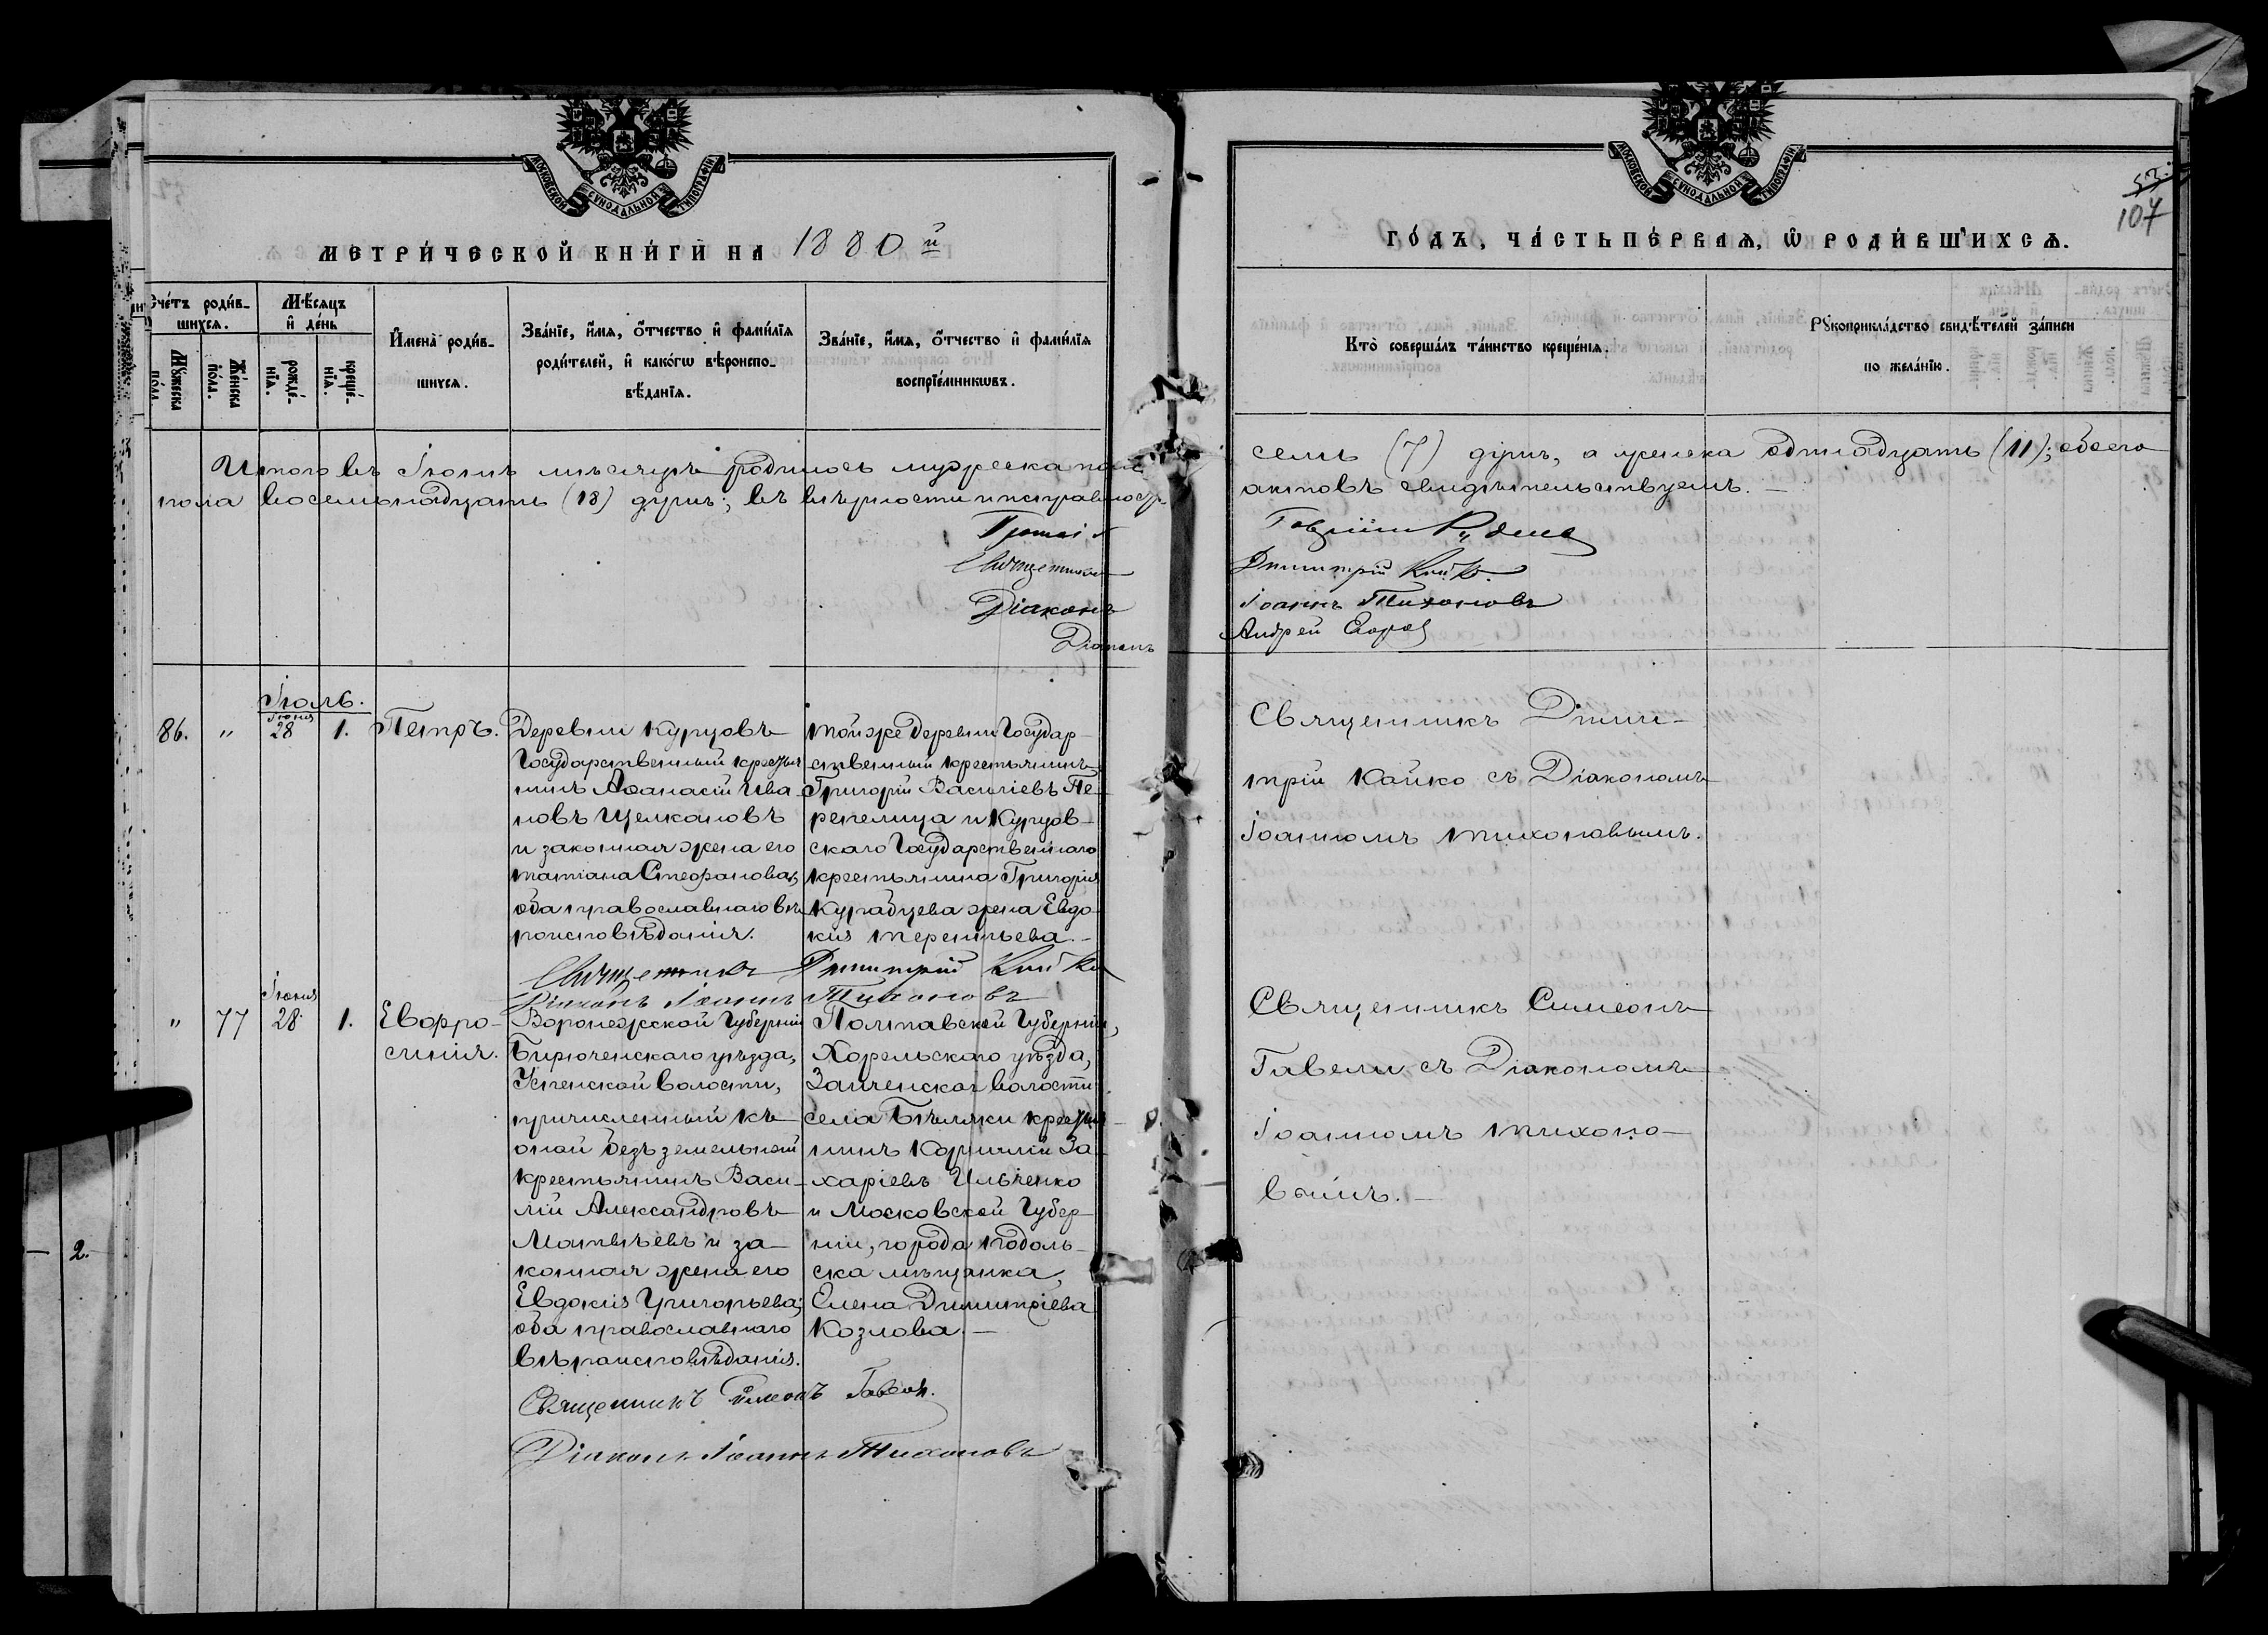 МОСКОВСКОЙ СѴНОДАЛЬНОЙ ТИПОГРАФІИ
МОСКОВСКОЙ СѴНОДАЛЬНОЙ ТИПОГРАФІИ
53.
107
МЕТРИ́ЧЕСКОЙ КНИ́ГИ НА 1880й
ГО́ДЪ, ЧА́СТЬ ПЕ́РВАѦ, Ѡ҆ РОДИ́ВШИХСѦ.
Сче́тъ роди́в-
шихсѧ.
Мꙋ́жеска по́ла.
Же́нска по́ла.
Мѣ́сѧцъ
и҆ де́нь
рожде́-нїѧ.
креще́-нїѧ.
И҆мена̀ роди́в-
шихсѧ.
Зва́нїе, и҆́мѧ, ѻ҆́тчество и҆ фами́лїѧ
роди́телей, и҆ како́гѡ вѣ́роиспо-
вѣ́данїѧ.
Зва́нїе, и҆́мѧ, ѻ҆́тчество и҆ фами́лїѧ
воспрїе́мникѡвъ.
Кто̀ соверша́лъ та́инство креще́нїѧ.
Рꙋкоприкла́дство свидѣ́телей за́писи
по жела́нїю.
Итого въ Іюнѣ мѣсяцѣ родилось мужеска пола
семь (7) душъ, а женска одинадцать (11); обоего
пола восемьнадцать (18) душъ; въ вѣрности и исправности
актовъ свидѣтельствуемъ.—
Священникъ Димитрій Кайко.
Діаконъ Іоаннъ Тихоновъ
Діаконъ Андрей
Іюль.
86. " Іюня 28 1. Петръ.
Деревни Курцовъ
Государственный крестья
нинъ Аѳанасій Ива-
новъ Щелкановъ
и законная жена его
Татіана Стефанова,
оба православнаго вѣ
роисповѣданія.
Той же деревни Государ-
ственный крестьянинъ
Григорій Василіевъ Пе-
репелица и Курцов-
скаго Государственнаго
крестьянина Григорія
жена Евдо-
кія Терентьева.—
Священникъ Дими-
трій Кайко съ Діакономъ
Іоанномъ Тихоновымъ.
Священникъ Димитрій Кайко
Діаконъ Іоаннъ Тихоновъ
" 77 Іюня 28 1. Евфро-
синія.
Воронежской Губерніи
Бирюченскаго уѣзда,
Успенской волости,
причисленный къ
оной безземельный
крестьянинъ Васи-
лій Александровъ
Матвѣевъ и за-
конная жена его
Евдокія Григорьева;
оба православнаго
вѣроисповѣданія.
Полтавской Губерніи,
Хорольскаго уѣзда,
Заиченской волости
села Бѣляки крестья-
нинъ Корнилій За-
харіевъ Ильченко
и Московской Губер-
ніи, города Подоль-
ска мѣщанка,
Елена Димитріева
Козлова.—
Священникъ Симеонъ
Гавели съ Діакономъ
Іоанномъ Тихоно-
вымъ.—
Священникъ Симеонъ
Діаконъ Іоаннъ Тихоновъ
2.